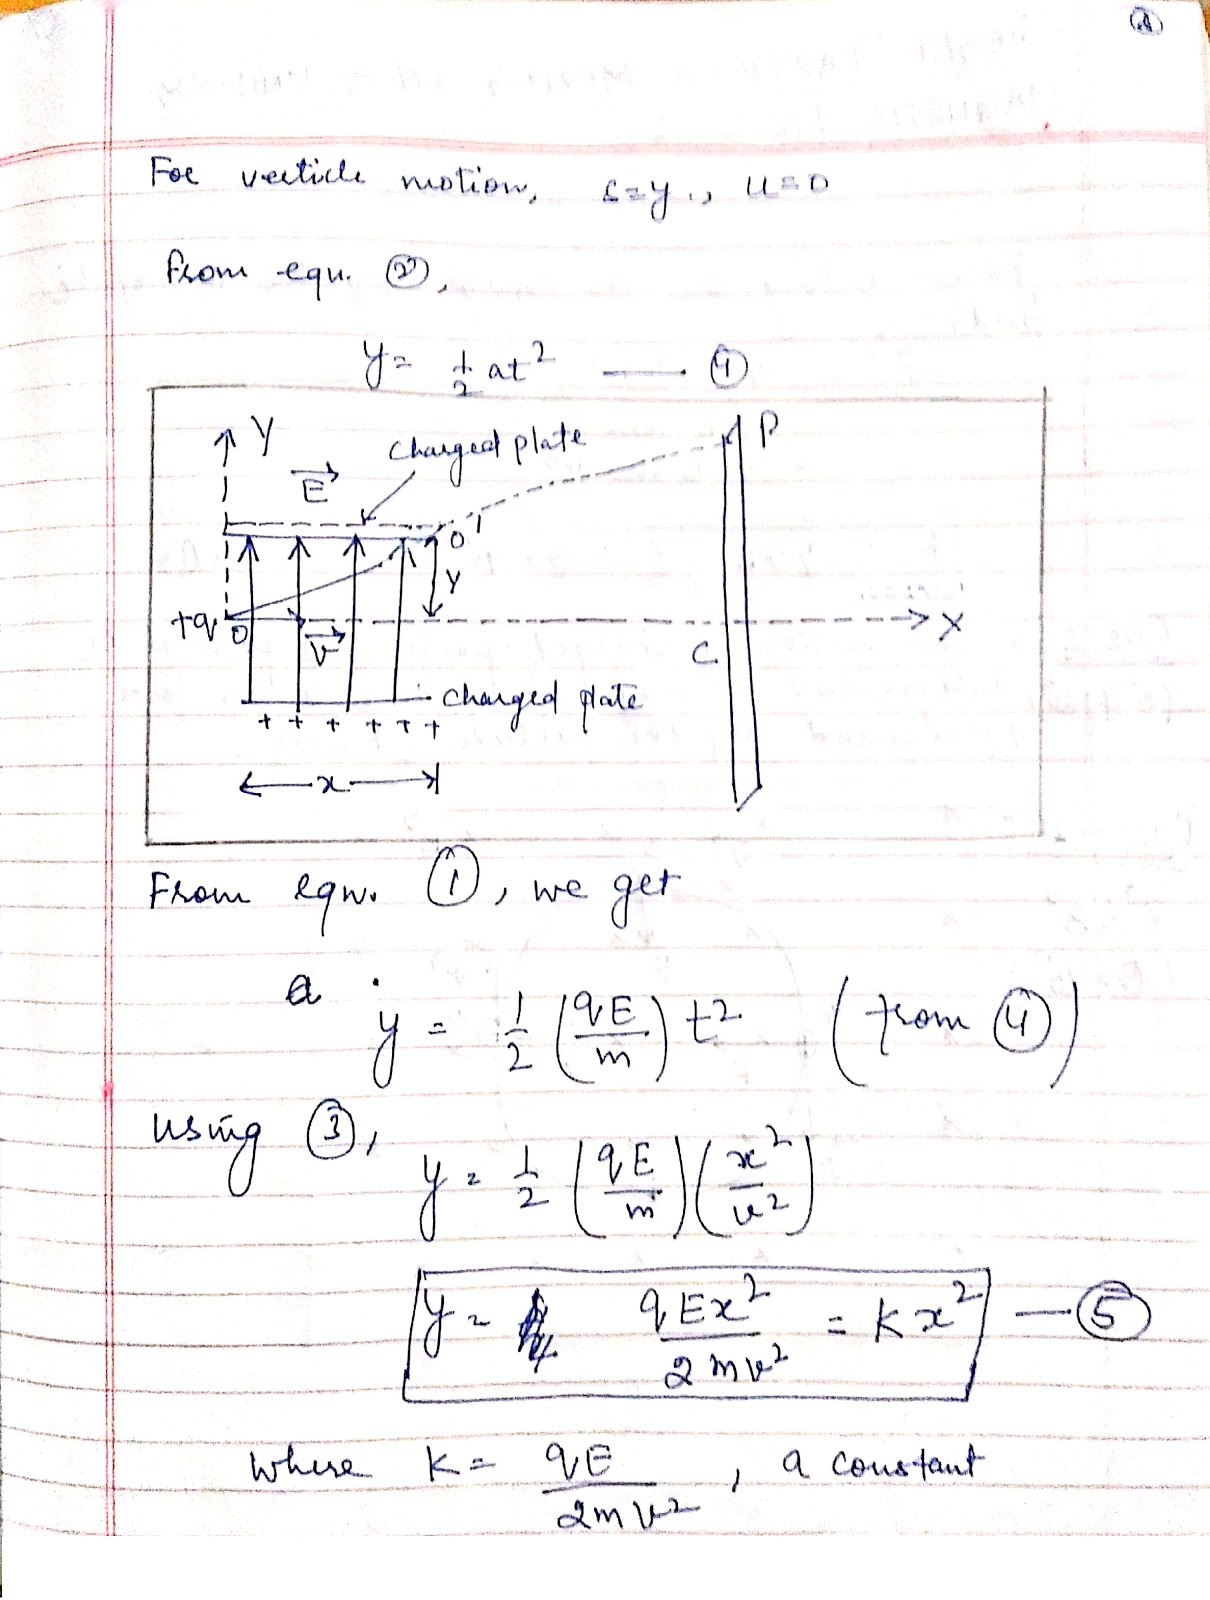 For verticle motion, s=y., u=0
From equ. ②,
y = 1/2 at² —— ④
Y
charged plate
P
E
O'
y
+q O
v
X
C
charged plate
+ + + + + +
x
From eqn. ①, we get
a y = 1/2 (qE/m) t² (from ④)
using ③,
y = 1/2 (qE/m) (x²/v²)
y = qEx²/2mv² = Kx² —⑤
where K = qE/2mv², a constant